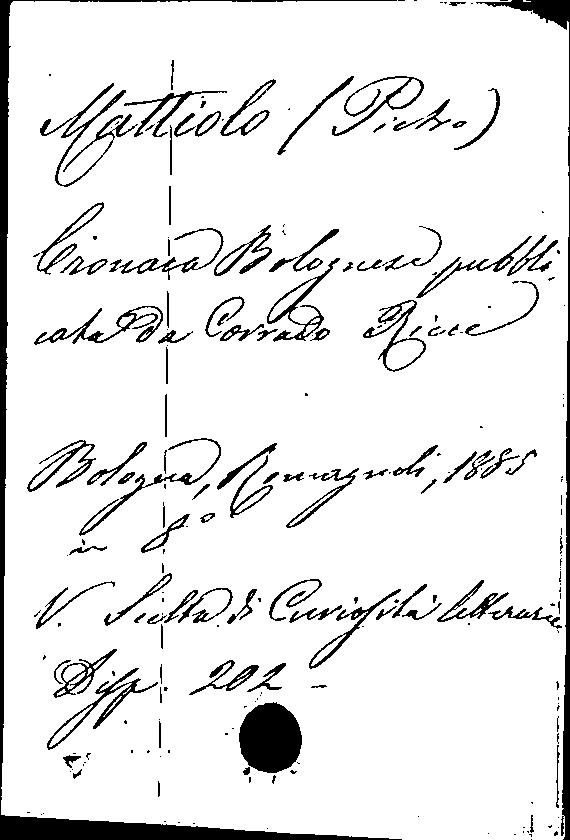 Mattiolo (Pietro)
Cronaca Bolognese pubbli-
cata da Corrado Ricci
Bologna, Romagnoli, 1885
in 8°
V. Scelta di Curiosità letterarie
Disp. 202 -